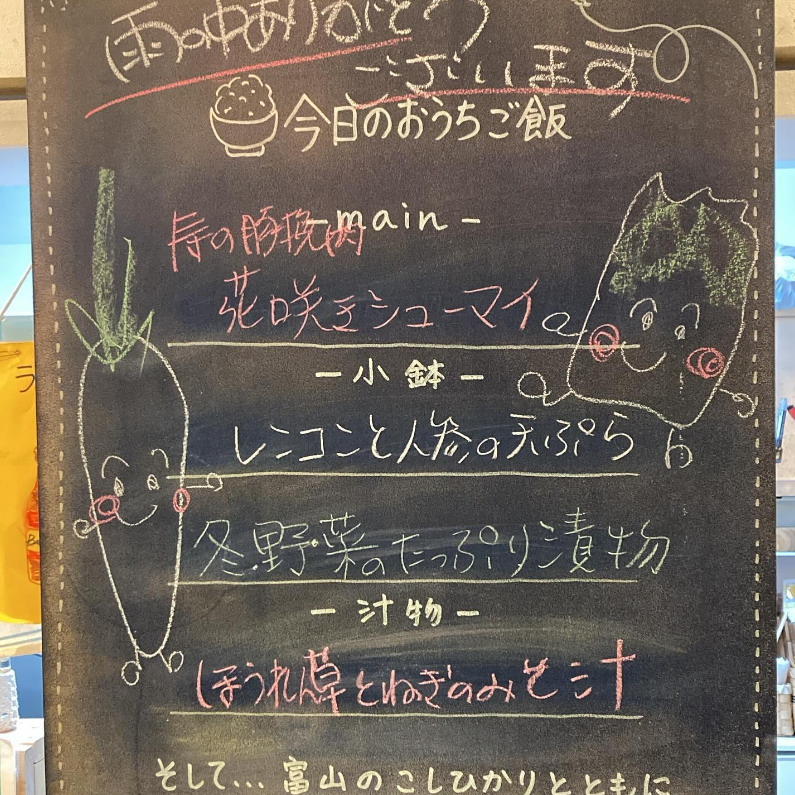 雨の中ありがとう
ございます
今日のおうちご飯
-main-
の豚挽肉
花咲きシューマイ
-小鉢-
レンコンと人参の天ぷら
冬野菜のたっぷり漬物
-汁物-
ほうれん草とねぎのみそ汁
そして…富山のこしひかりとともに
ラ